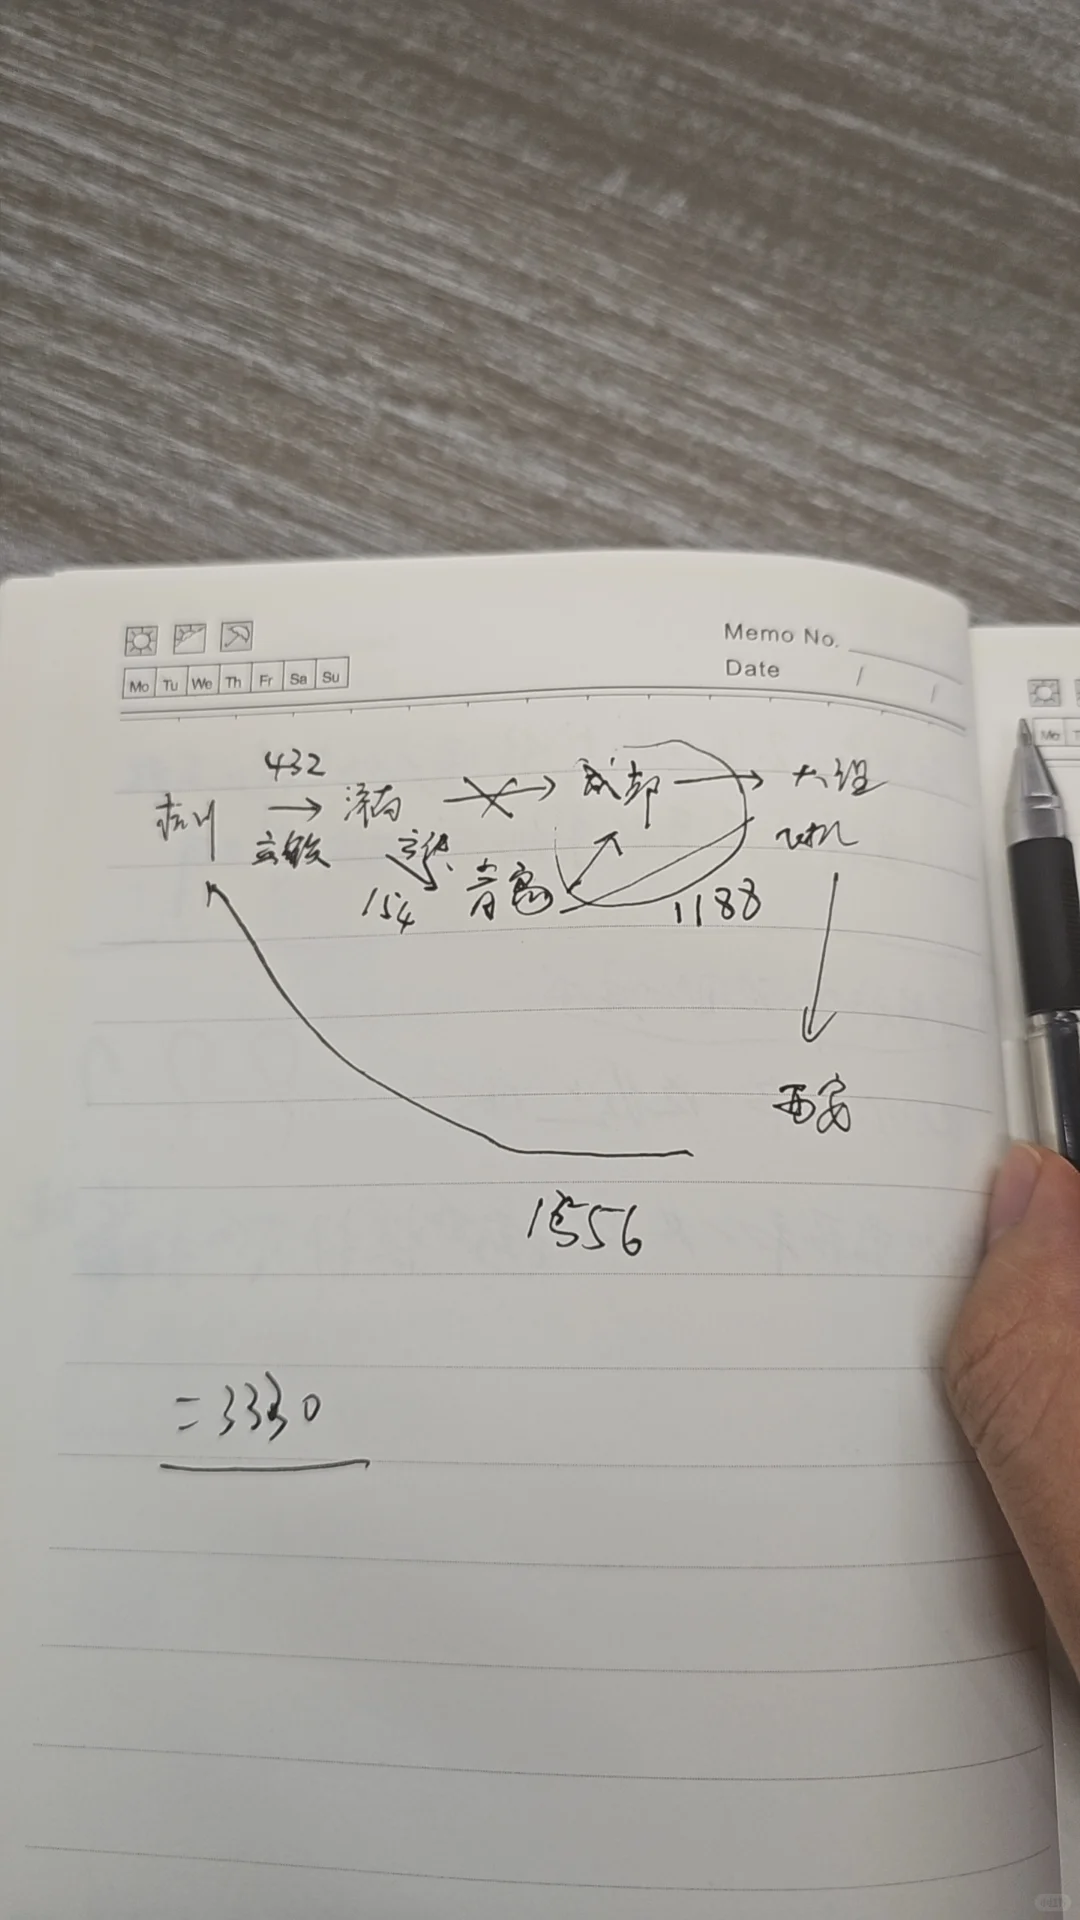 Memo No.
Mo Tu We Th Fr Sa Su
Date / /
Mo
432
杭州 → 济南 → 成都 → 大理
高铁 高铁 飞机
154 青岛 1188
西安
1556
=3330